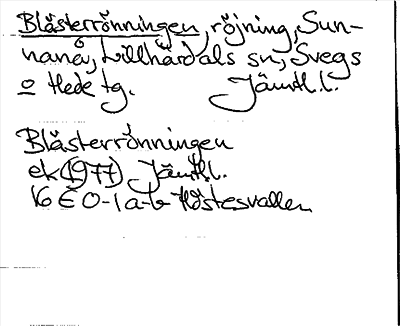 Blästerrönningen, röjning, Sun-
nanå, Lillhärdals sn, Svegs
o Hede tg. Jämtl. l.
Blästerrönningen
ek (1977) Jämtl.
16 E 0-1 a-b Höstesvallen